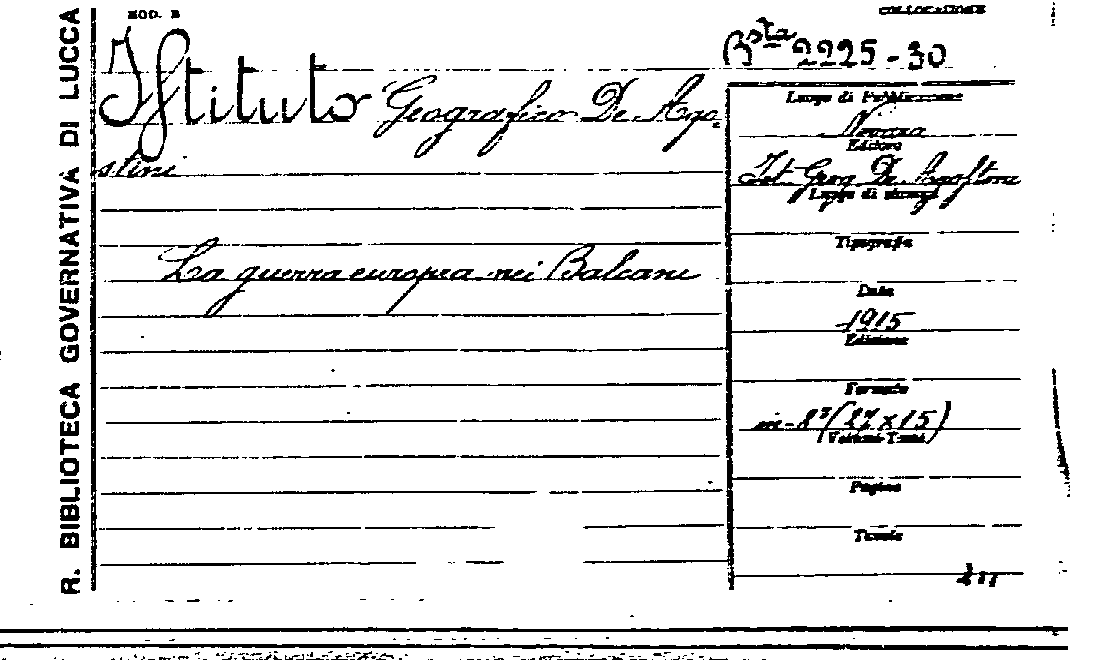 R. BIBLIOTECA GOVERNATIVA DI LUCCA
MOD. B
COLLOCAZIONE
Bsta 2225-30
Istituto Geografico De Ago-
stini
La guerra europea nei Balcani
Luogo di Pubblicazione
Novara
Editore
Ist. Geog. De Agostini
Luogo di stampa
Tipografia
Data
1915
Edizione
Formato
in-8° (22 x 15)
Volumi-Tomi
Pagine
Tavole